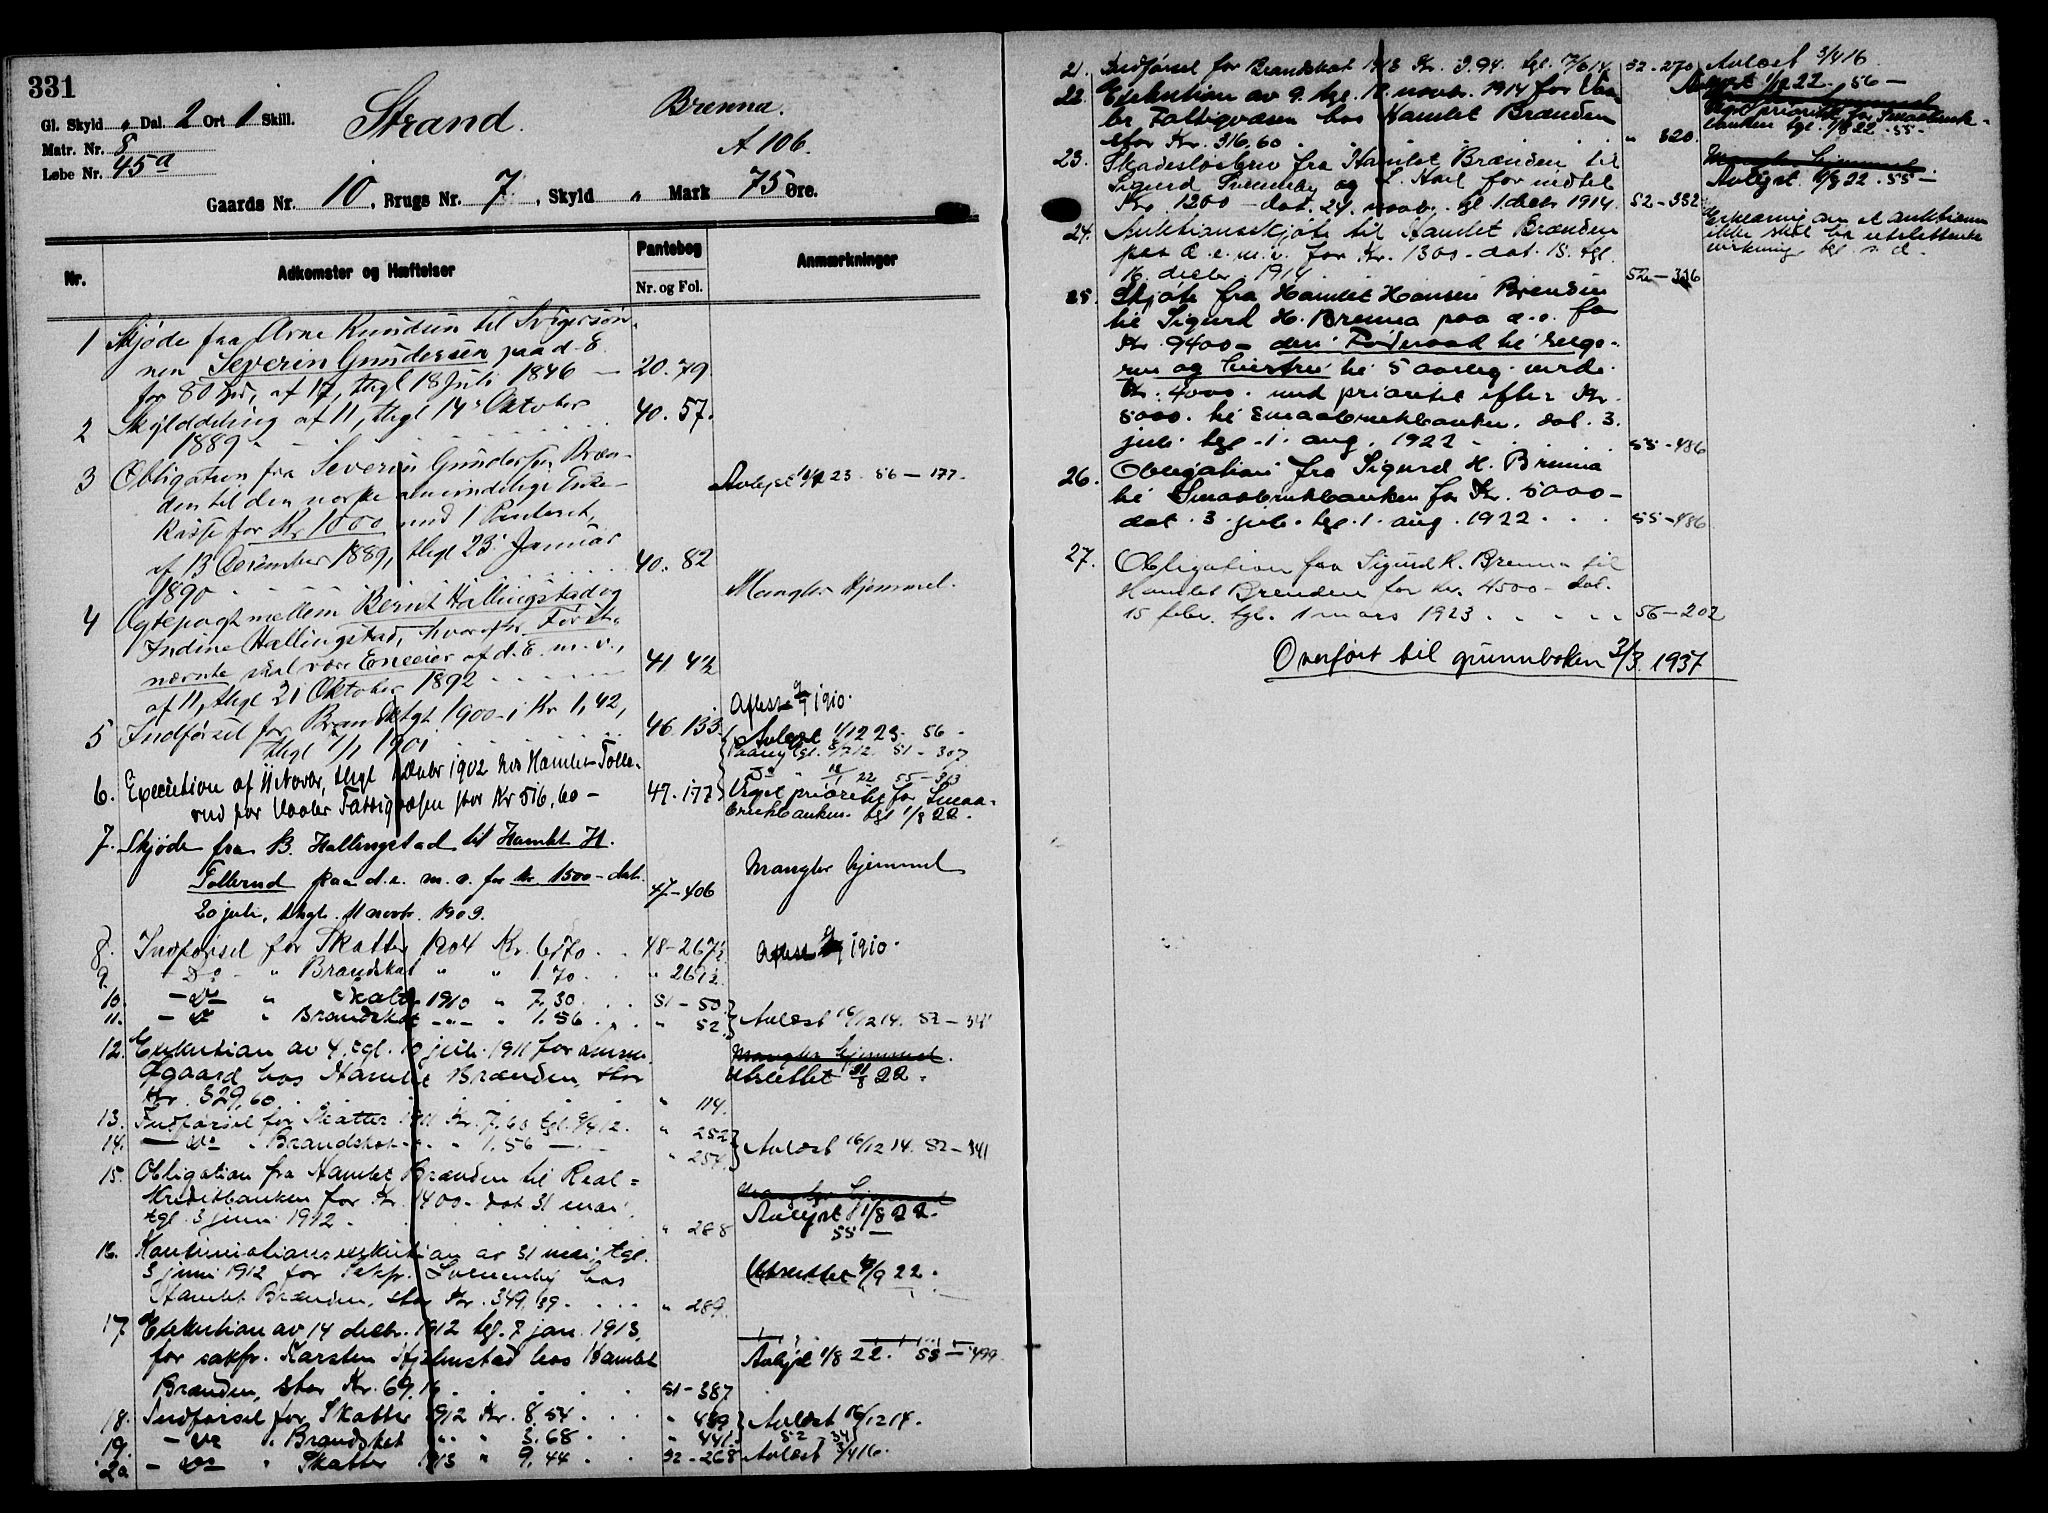 331
Gl. Skyld " Dal. 2 Ort 1 Skill.
Matr. Nr. 8
Løbe Nr. 45a
Strand.
Brenna.
A 106.
Gaards Nr. 10, Brugs Nr. 7, Skyld " Mark 75 Øre.
Nr.
Adkomster og Hæftelser
Pantebog
Nr. og Fol.
Anmærkninger
1 Skjøde fra Arne Knudsen til Svigersøn-
nen Severin Gundersen paa d. E.
for 80 Spd, af 17, thgl 18 Juli 1846 — 20. 79
2 Skylddeling af 11, thgl 14 Oktober
1889 40. 57.
3 Obligation fra Severin Gundersen Bræn-
den til den norske almindelige Enke-
kasse for Kr 1000 med 1 Panteret,
af 13 December 1889, thgl 23 Januar
1890 40. 82
Avlyst 23. 56 — 177.
4 Ægtepagt mellem Bernt Hallingstad og
Indine Hallingstad, hvorefter Først-
nævnte skal være Eneeier af d. E. m. v.,
af 11, thgl 21 Oktober 1892 41 42
Mangler Hjemmel.
5 Indførsel for Brandktgt 1900 i Kr 1,42,
thgl 7/1 1901 46 133
Aflæst 1910.
6. Execution af 11 Novbr, thgl Decbr 1902 hos Hamlet Tolle-
rud for Vaaler Fattigvæsen stor Kr 516,60 — 47. 177
Avlyst 1/12 23. 56 -
Paany tgl. 12. 51 - 307
Do " 22 55 - 313
Veget prioritet for Smaa-
brukbanken. tgl 1/8 22.
7. Skjøde fra B. Hallingstad til Hamlet H.
Tollerud paa d. e. m. v. for kr. 1500 - dat.
20 juli, thgl. 11 novbr. 1903. 47-406
Mangler hjemmel
8. Indførsel for Skatter 1904 Kr. 6,70 . . 48-267½
9. - Do - " Brandskat " " 1.70 . . " 267½
Aflæst 1910.
10. - Do - " Skatt 1910 " 7,30 . . 51 - 50
11. - Do " Brandskat -"- " 1.56 . . " 52.
Avlæst 16/12 14. 52 — 341
12. Exekution av 4, tgl. 10 juli 1911 for
Øgaard hos Hamlet Brænden, stor
Kr. 329,60 . . . " 114.
Mangler hjemmel.
Utslettet 22.
13. Indførsel for Skatter 1911 Kr. 7.60 tgl. 9/4 12. " 252
14. — Do " Brandskat " " 1.56 — " 254.
Avlæst 16/12 14. 52 — 341
15. Obligation fra Hamlet Brænden til Real-
Kreditbanken for Kr. 1400 - dat 31 mai
tgl. 3 juni 1912. " 288
Mangler hjemmel
Avlyst 11/8 22.
55 —
16. Kontinuationsexekution av 31 mai, tgl.
3 juni 1912 for Sakfr. Svenneby hos
Hamlet Brænden, stor Kr. 349,39. . . . " 289.
Utslettet 9/9 22.
17 Exekution av 14 decbr. 1912 tgl. 7 jan. 1913,
for sakfr. Karsten Hjelmstad hos Hamlet
Brænden, stor Kr. 69,16 . . . . . 51 - 387
Avlyst 1/8 22. 55 — 499.
18. Indførsel for Skatter 1912 Kr. 8.54 . . . " 439
19. - Do " Brandskat " " 3.68 . . " 441.
Avlæst 16/12 14.
52 - 341
20 - Do " Skatter 1913 " 9,44 . . 52 - 268
Avlæst 3/4 16.
21. Indførsel for Brandskat 1913 Kr. 3.94. tgl. 7/6 14 52 - 270
Avlæst 3/4 16.
22. Exekution av 9. tgl. 12 novbr. 1914 for Vaa-
ler Fattigvæsen hos Hamlet Brænden
stor Kr. 316,60 . . " 320.
Avlyst 22. 56 —
Veget prioritet for Smaabruk-
banken tgl. 1/8 22 . 55 -
23. Skadesløsbrev fra Hamlet Brænden til
Sigurd Svenneby og for indtil
Kr. 1200 — dat. 24. novbr. tgl 1 decbr 1914. 52 - 332
Mangler hjemmel
Avlyst 22 . 55 —
24. Auktionsskjøte til Hamlet Brænden
paa d. e. m. v. for Kr. 1300 - dat. 15. tgl.
16. decbr. 1914 52 — 336
Erklæring om at auktionen
ikke skal ha utslettende
virkning tgl. s. d.
25. Skjøte fra Hamlet Hansen Brenden
til Sigurd H. Brenna paa d. e. for
Kr. 9400 — den. Føderaad til sælge-
ren og hustru til 5 aarlig værdi
Kr. 4000. med prioritet efter Kr.
5000. til Smaabrukbanken. dat. 3.
juli. tgl. 1. aug. 1922 55 - 486
26. Obligation fra Sigurd H. Brenna
til Smaabrukbanken for Kr. 5000 -
dat. 3. juli. tgl. 1. aug. 1922 . . . 55 - 486
27. Obligation fra Sigurd H. Brenna til
Hamlet Brenden for kr. 4500 - dat.
15 febr. tgl. 1 mars 1923 . . . . . 56-202
Overført til grunnboken 2/3. 1937